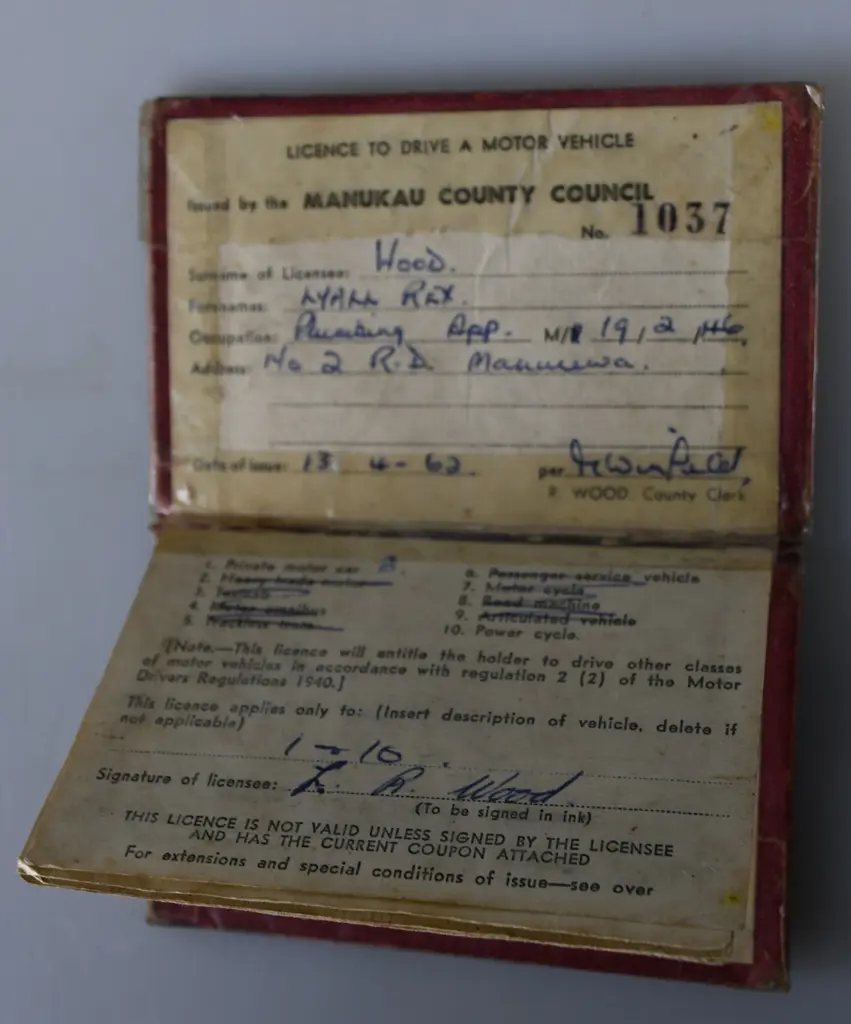 LICENCE TO DRIVE A MOTOR VEHICLE
Issued by the MANUKAU COUNTY COUNCIL
No. 1037
Surname of Licensee: Wood.
Forenames: LYALL REX.
Occupation: Plumbing App. M/F 19/2/46
Address: No 2 R.D. Manurewa.
Date of issue: 13. 4-62. per
R. WOOD County Clerk
1. Private motor car 6. Passenger service vehicle
2. Heavy trade motor 7. Motor cycle
3. Taxicab 8. Road machine
4. Motor omnibus 9. Articulated vehicle
5. Trackless tram 10. Power cycle.
[Note.—This licence will entitle the holder to drive other classes
of motor vehicles in accordance with regulation 2 (2) of the Motor
Drivers Regulations 1940.]
This licence applies only to: (Insert description of vehicle, delete if
not applicable)
1 - 10.
Signature of licensee: L. R. Wood
(To be signed in ink)
THIS LICENCE IS NOT VALID UNLESS SIGNED BY THE LICENSEE
AND HAS THE CURRENT COUPON ATTACHED
For extensions and special conditions of issue—see over